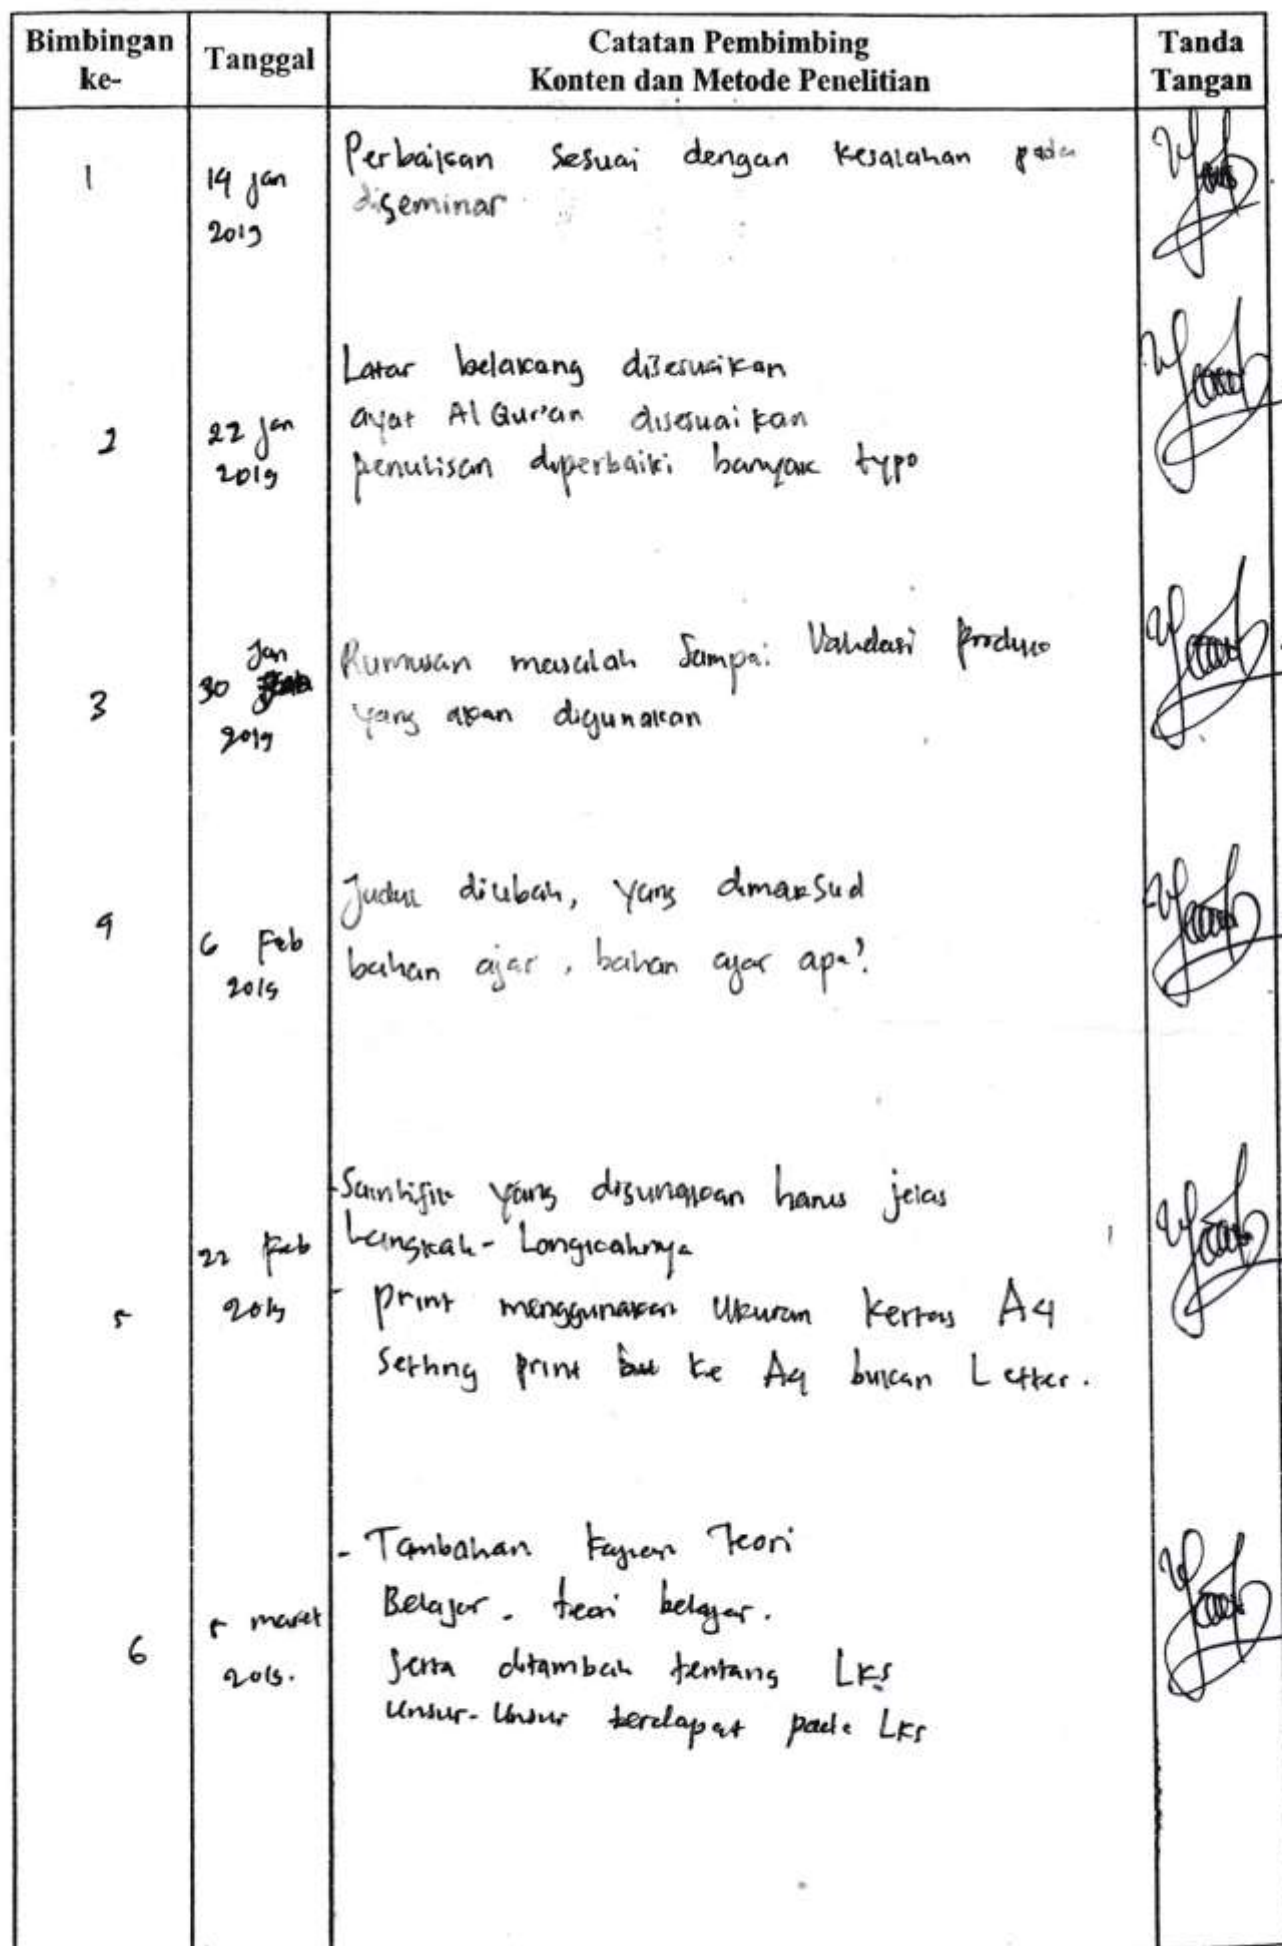 Bimbingan ke-
Tanggal
Catatan Pembimbing
Konten dan Metode Penelitian
Tanda Tangan
1
14 Jan
2019
Perbaikan sesuai dengan kesalahan pada
diseminar
2
22 Jan
2019
Latar belakang disesuaikan
ayat Al Qur'an disesuaikan
penulisan diperbaiki banyak typo
3
Jan
30
2019
Rumusan masalah sampai Validasi produk
yang akan digunakan
4
6 Feb
2019
Judul diubah, yang dimaksud
bahan ajar, bahan ajar apa?
5
22 Feb
2019
-Saintifik yang digunakan harus jelas
Langkah-Langkahnya
- print menggunakan Ukuran Kertas A4
Setting print ke A4 bukan Letter.
6
5 maret
2019.
- Tambahan kajian Teori
Belajar. teori belajar.
Serta ditambah tentang LKS
Unsur-Unsur terdapat pada LKS